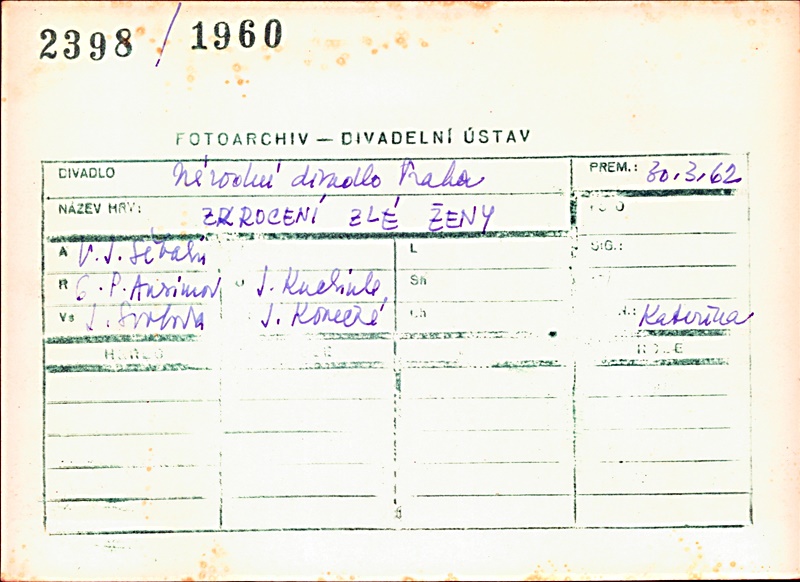 2398 / 1960
FOTOARCHIV — DIVADELNÍ ÚSTAV
DIVADLO Národní divadlo Praha PREM.: 30.3.62
NÁZEV HRY: ZKROCENÍ ZLÉ ŽENY FOTO
A V. J. Šebalin L SIG.:
R G. P. Ansimov J. Kuchinka Sh
Vs J. Svoboda J. Konečná Ch Kateřina
HEREC ROLE